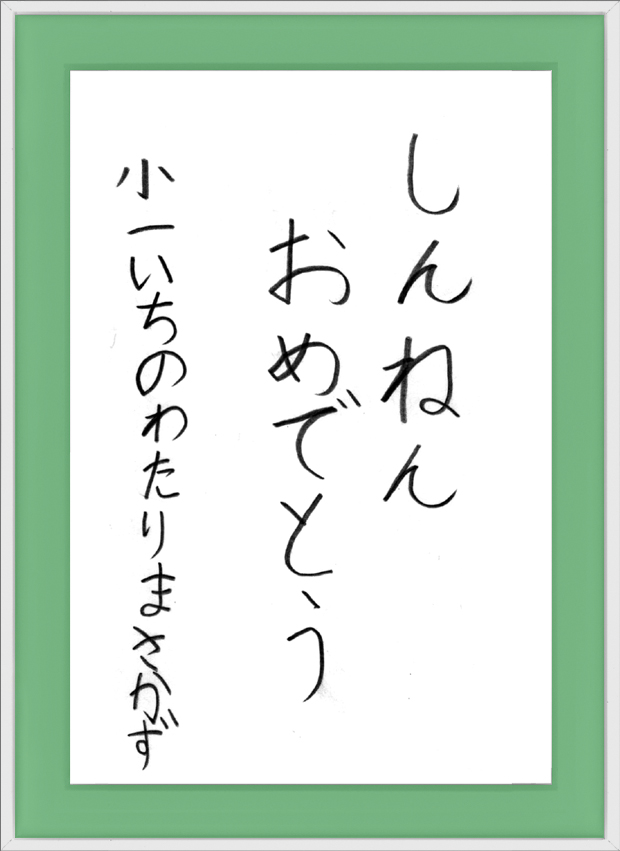 しんねん
おめでとう
小一いちのわたりまさかず